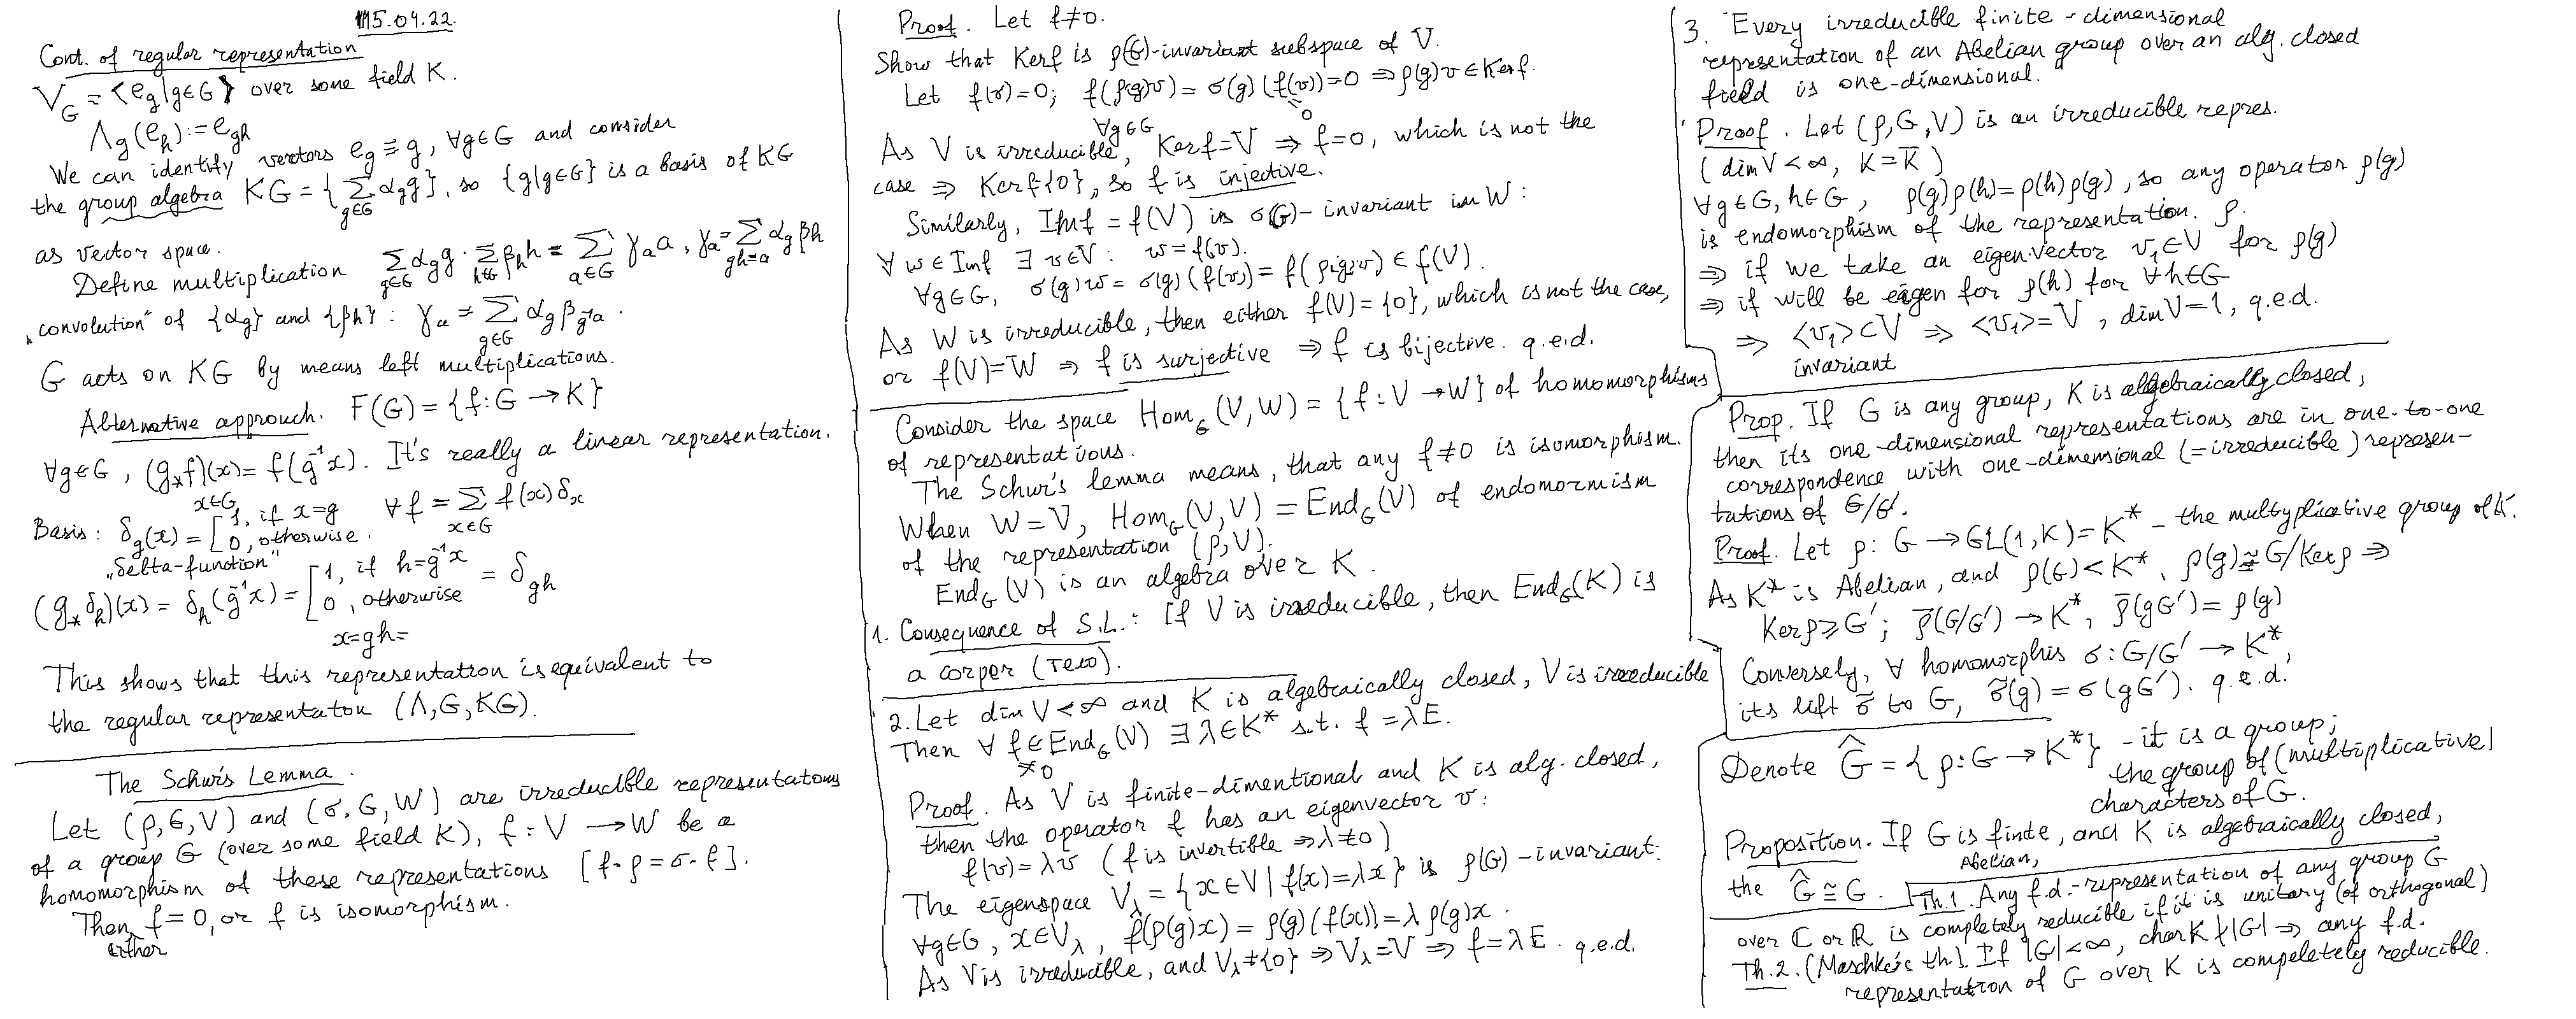 15.04.22.
Cont. of regular representation
V_G = <e_g | g∈G> over some field K.
Λ_g(e_h) := e_gh
We can identify vectors e_g ≡ g, ∀g∈G and consider
the group algebra KG = { Σ_{g∈G} α_g g }, so {g|g∈G} is a basis of KG
as vector space.
Define multiplication Σ_{g∈G} α_g g · Σ_{h∈G} β_h h = Σ_{a∈G} γ_a a, γ_a = Σ_{gh=a} α_g β_h
„convolution" of {α_g} and {β_h} : γ_a = Σ_{g∈G} α_g β_{g⁻¹a}.
G acts on KG by means left multiplications.
Alternative approuch. F(G) = {f: G → K}
∀g∈G, (g_* f)(x) = f(g⁻¹x). It's really a linear representation.
x∈G
Basis: δ_g(x) = [1, if x=g 0, otherwise. ∀f = Σ_{x∈G} f(x) δ_x
„Selta-function"
(g_* δ_h)(x) = δ_h(g⁻¹x) = [1, if h=g⁻¹x 0, otherwise = δ_gh
x=gh=
This shows that this representation is equivalent to
the regular representaton (Λ, G, KG).
The Schur's Lemma.
Let (ρ, G, V) and (σ, G, W) are irreducible representatons
of a group G (over some field K), f : V → W be a
homomorphism of these representations [f·ρ = σ·f].
Then either f=0, or f is isomorphism.
Proof. Let f≠0.
Show that Ker f is ρ(G)-invariant subspace of V.
Let f(v)=0; f(ρ(g)v) = σ(g)(f(v))=0 ⇒ ρ(g)v ∈ Ker f.
∀g∈G 0
As V is irreducible, Ker f=V ⇒ f=0, which is not the
case ⇒ Ker f={0}, so f is injective.
Similarly, Im f = f(V) is σ(G)-invariant in W :
∀ w ∈ Im f ∃ v∈V : w = f(v).
∀g∈G, σ(g)w = σ(g)(f(v)) = f(ρ(g)v) ∈ f(V).
As W is irreducible, then either f(V)={0}, which is not the case,
or f(V)=W ⇒ f is surjective ⇒ f is bijective. q.e.d.
Consider the space Hom_G(V,W) = {f : V → W} of homomorphisms
of representations.
The Schur's lemma means, that any f≠0 is isomorphism.
When W=V, Hom_G(V,V) = End_G(V) of endomormism
of the representation (ρ,V).
End_G(V) is an algebra over K.
1. Consequence of S.L.: If V is irreducible, then End_G(K) is
a corper (тело).
2. Let dim V<∞ and K is algebraically closed, V is irreducible
Then ∀ f∈End_G(V) ∃ λ∈K* s.t. f = λE.
≠0
Proof. As V is finite-dimentional and K is alg. closed,
then the operator f has an eigenvector v:
f(v) = λv (f is invertible ⇒ λ≠0)
The eigenspace V_λ = {x∈V | f(x)=λx} is ρ(G)-invariant:
∀g∈G, x∈V_λ, f(ρ(g)x) = ρ(g)(f(x)) = λρ(g)x.
As V is irreducible, and V_λ≠{0} ⇒ V_λ=V ⇒ f=λE. q.e.d.
3. Every irreducible finite-dimensional
representation of an Abelian group over an alg. closed
field is one-dimensional.
Proof. Let (ρ,G,V) is an irreducible repres.
(dim V<∞, K=K̄)
∀g∈G, h∈G, ρ(g)ρ(h)=ρ(h)ρ(g), so any operator ρ(g)
is endomorphism of the representation. ρ.
⇒ if we take an eigenvector v₁∈V for ρ(g)
⇒ if will be eigen for ρ(h) for ∀h∈G
⇒ <v₁>⊂V ⇒ <v₁>=V, dim V=1, q.e.d.
invariant
Prop. If G is any group, K is algebraically closed,
then its one-dimensional representations are in one-to-one
correspondence with one-dimensional (=irreducible) represen-
tations of G/G'.
Proof. Let ρ: G → GL(1,K)=K* - the multyplicative group of K.
As K* is Abelian, and ρ(G)<K*, ρ(g)≅G/Ker ρ ⇒
Ker ρ ⩾ G'; ρ̄(G/G') → K*, ρ̄(gG') = ρ(g)
Conversely, ∀ homomorphis σ: G/G' → K*,
its lift σ̃ to G, σ̃(g) = σ(gG'). q.e.d.
Denote Ĝ = {ρ: G → K*} - it is a group;
the group of (multiplicative)
characters of G.
Proposition. If G is finte, and K is algebraically closed,
Abelian,
the Ĝ ≅ G. Th.1. Any f.d.-representation of any group G
over ℂ or ℝ is completely reducible if it is unitary (of orthogonal)
Th.2. (Maschke's th). If |G|<∞, char K ∤ |G| ⇒ any f.d.
representation of G over K is compeletely reducible.